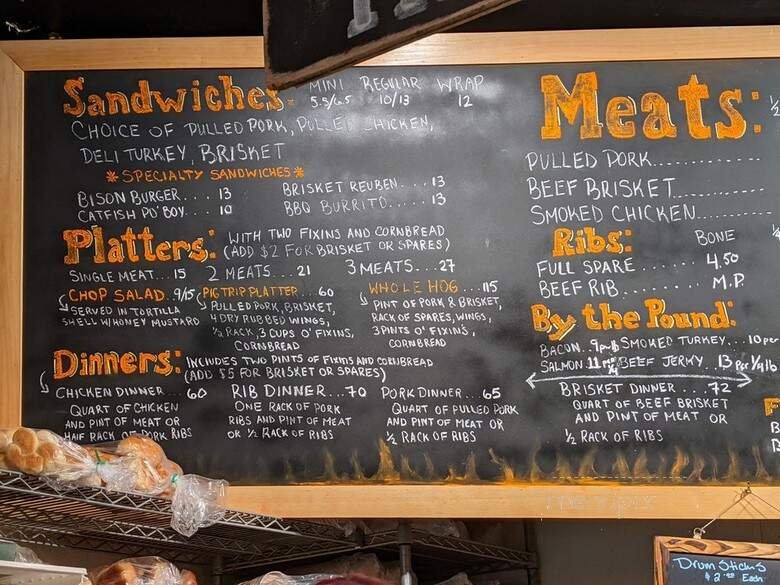 Sandwiches: MINI REGULAR WRAP
5.5/6.5 10/13 12
CHOICE OF PULLED PORK, PULLED CHICKEN,
DELI TURKEY, BRISKET
*SPECIALTY SANDWICHES*
BISON BURGER.... 13 BRISKET REUBEN.... 13
CATFISH PO'BOY.... 10 BBQ BURRITO..... 13
Platters: WITH TWO FIXINS AND CORNBREAD
(ADD $2 FOR BRISKET OR SPARES)
SINGLE MEAT...15 2 MEATS...21 3 MEATS...27
CHOP SALAD. 9/15
SERVED IN TORTILLA
SHELL W/HONEY MUSTARD
PIG TRIP PLATTER... 60
PULLED PORK, BRISKET,
4 DRY RUBBED WINGS,
1/2 RACK, 3 CUPS O' FIXINS,
CORNBREAD
WHOLE HOG... 115
PINT OF PORK & BRISKET,
RACK OF SPARES, WINGS,
3 PINTS O' FIXINS,
CORNBREAD
Dinners: INCLUDES TWO PINTS OF FIXINS AND CORNBREAD
(ADD $5 FOR BRISKET OR SPARES)
CHICKEN DINNER... 60
QUART OF CHICKEN
AND PINT OF MEAT OR
HALF RACK OF PORK RIBS
RIB DINNER...70
ONE RACK OF PORK
RIBS AND PINT OF MEAT
OR 1/2 RACK OF RIBS
PORK DINNER... 65
QUART OF PULLED PORK
AND PINT OF MEAT OR
1/2 RACK OF RIBS
Meats: 1/2
PULLED PORK
BEEF BRISKET
SMOKED CHICKEN
Ribs: BONE
FULL SPARE........ 4.50
BEEF RIB........ M.P.
By the Pound:
BACON.. SMOKED TURKEY... 10 per
SALMON BEEF JERKY.. 13 Per 1/4 lb
BRISKET DINNER...72
QUART OF BEEF BRISKET
AND PINT OF MEAT OR
1/2 RACK OF RIBS
Drum Sticks
$2.00 Each